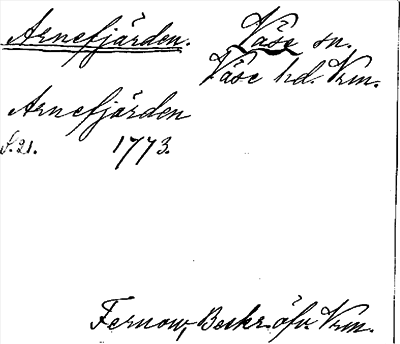 Arnefjärden. Väse sn.
Väse hd. Vrm.
Arnefjärden
S. 21. 1773.
Fernow, Beskr. öfv. Vrm.